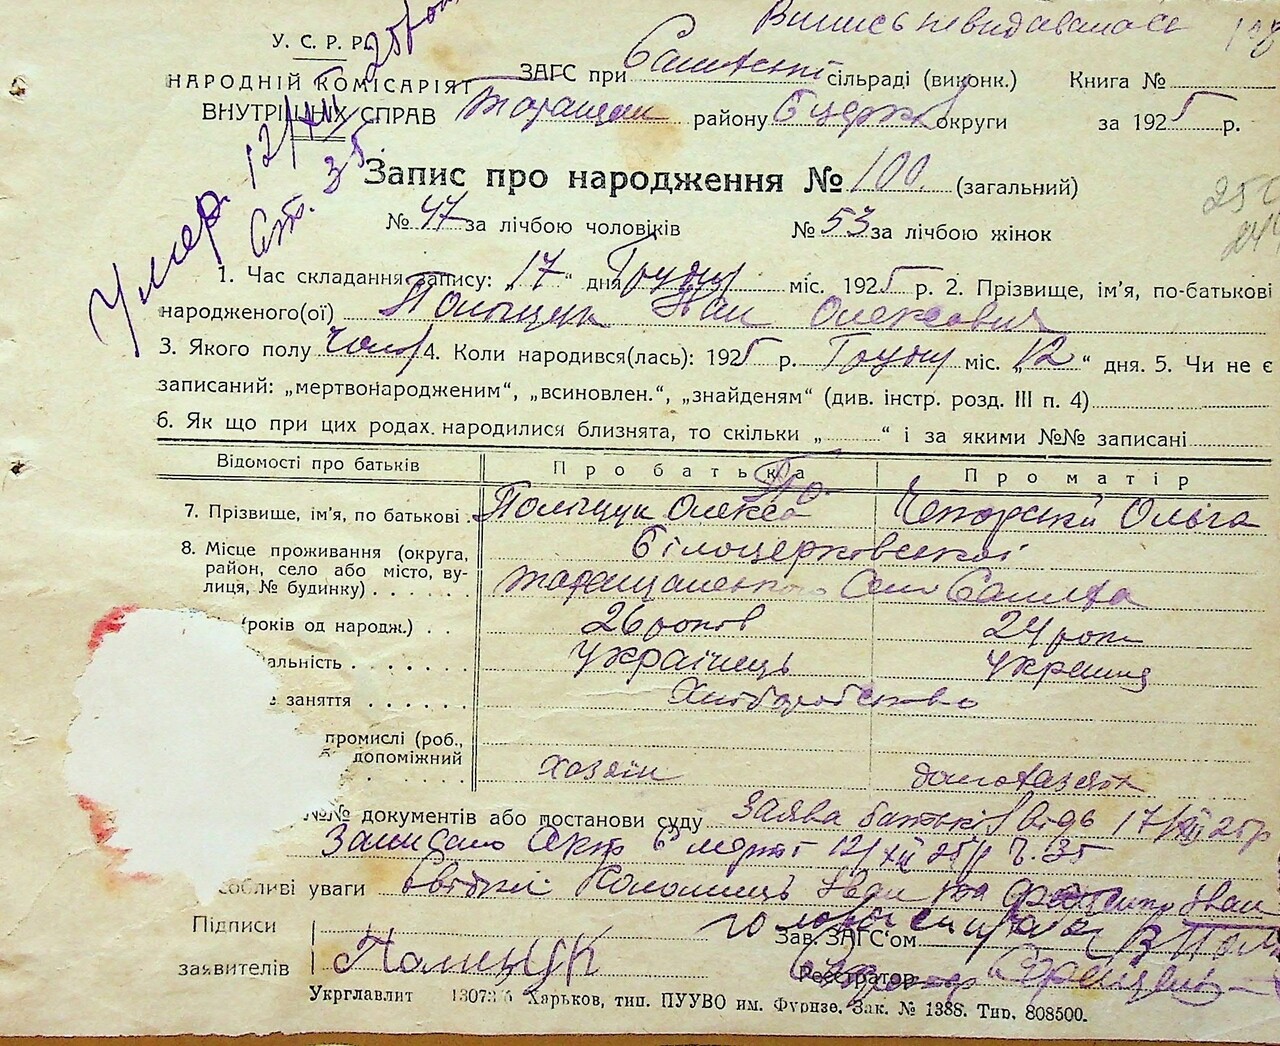 Випись не видавалась
У. С. Р. Р.
НАРОДНІЙ КОМІСАРІЯТ
ВНУТРІШНІХ СПРАВ
ЗАГС при сільраді (виконк.) Книга №
району Бцерк округи за 1925 р.
Умер. 12/XII 25 рок
Ст. 35
Запис про народження № 100. (загальний)
№ 47 за лічбою чоловіків № 53 за лічбою жінок
1. Час складання запису: „17“ дня Грудня міс. 1925 р. 2. Прізвище, ім'я, по-батькові
народженого(ої) Поліщук Іван Олексович
3. Якого полу чолов 4. Коли народився(лась): 1925 р. Грудня міс. „12“ дня. 5. Чи не є
записаний: „мертвонародженим“, „всиновлен.“, „знайденям“ (див. інстр. розд. III п. 4)
6. Як що при цих родах народилися близнята, то скільки „ “ і за якими №№ записані
Відомості про батьків Про батька Про матір
7. Прізвище, ім'я, по батькові Поліщук Олекса Ольга
8. Місце проживання (округа, Білоцерковської
район, село або місто, ву-
лиця, № будинку) Таращанського Село
(років од народж.) 26 років 24 роки
альність українець українка
заняття Хліборобство
промислі (роб.,
допоміжний хазяїн
№№ документів або постанови суду Заява батьків від 17/XII 25 р
Записано Акт смерті 12/XII 25 р Ч. 35
собливі уваги Свідки: Коломієць Іван та Іван
Підписи
заявителів Полищук
Зав. ЗАГС'ом
Реєстратор
Укрглавлит Харьков, тип. ПУУВО им. Фрунзе. Зак. № 1388. Тир. 808500.